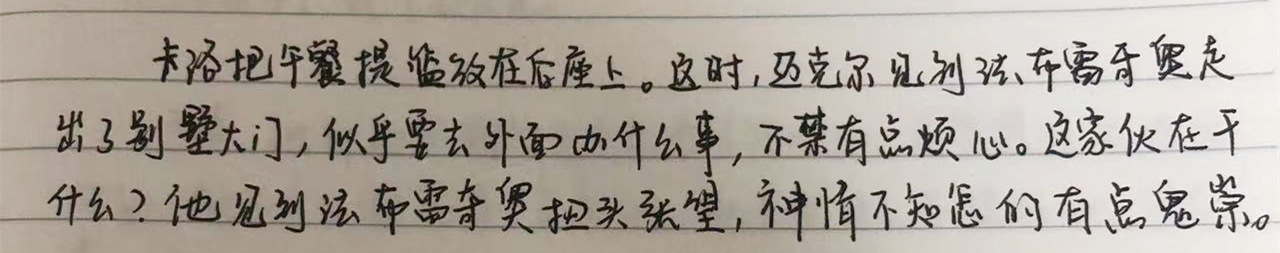 卡洛把午餐提篮放在后座上。这时,迈克尔见到法布雷奇奥走
出了别墅大门,似乎要去外面办什么事,不禁有点烦心。这家伙在干
什么?他见到法布雷奇奥扭头张望,神情不知怎的有点鬼祟。